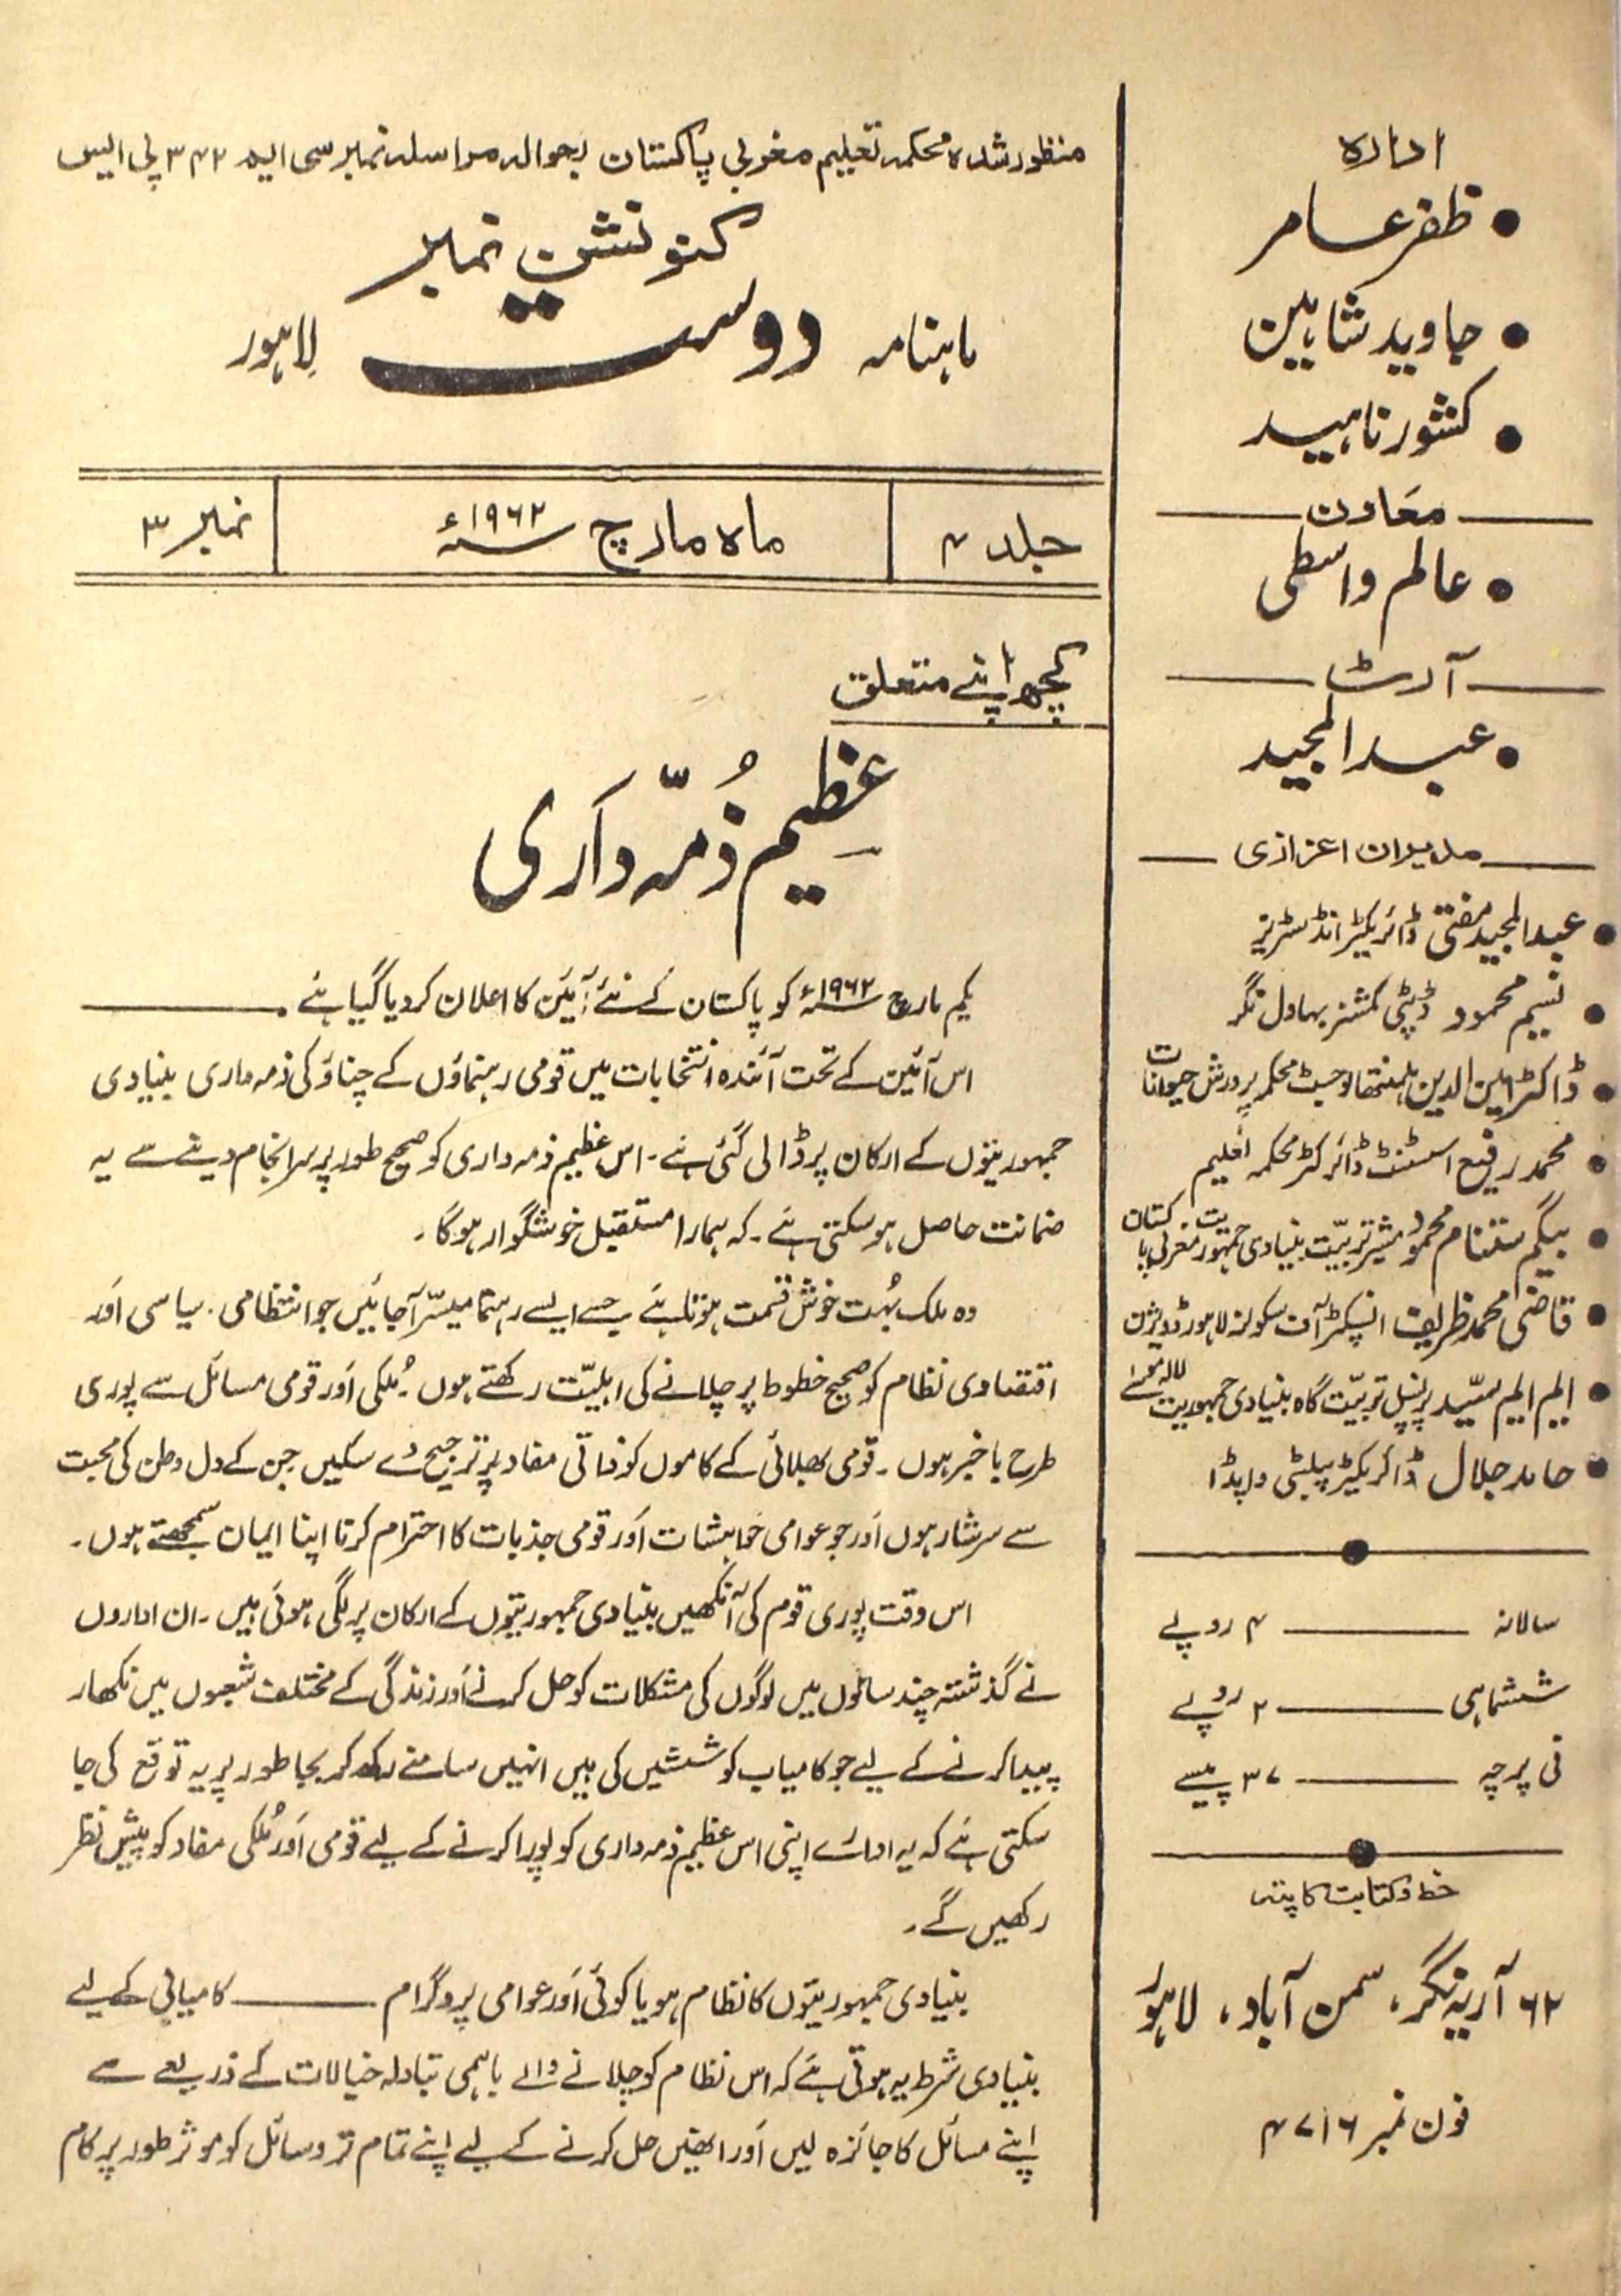 ادارہ
● ظفر عامر
● جاوید شاہین
● کشور ناہید
معاون
● عالم واسطی
آرٹ
● عبدالمجید
مدیران اعزازی
● عبدالمجید مفتی ڈائریکٹر انڈسٹریز
● نسیم محمود ڈپٹی کمشنر بہاول نگر
● ڈاکٹر امین الدین ہلمنتھالوجسٹ محکمہ پرورش حیوانات
● محمد رفیع اسسٹنٹ ڈائرکٹر محکمہ تعلیم
● بیگم ستنام محمود مشیر تربیّت بنیادی جمہوریت مغربی پاکستان
● قاضی محمد ظریف انسپکٹر آف سکولز لاہور ڈویژن
● ایم ایم سیّد پرنسپل تربیّت گاہ بنیادی جمہوریت لالہ موسےٰ
● حامد جلال ڈائریکٹر پبلسٹی واپڈا
سالانہ ——— ۴ روپے
ششماہی ——— ۲ روپے
فی پرچہ ——— ۳۷ پیسے
خط و کتابت کا پتہ
۶۲ آریہ نگر، سمن آباد، لاہور
فون نمبر ۴۷۱۶
منظور شدہ محکمہ تعلیم مغربی پاکستان بحوالہ مراسلہ نمبر سی ایم ۳۴۲ پی ایس
کنونشن نمبر
ماہنامہ دوست لاہور
جلد ۴ ماہ مارچ ۱۹۶۲ء نمبر ۳
کچھ اپنے متعلق
عظیم ذُمّہ داری
یکم مارچ ۱۹۶۲ء کو پاکستان کے نئے آئین کا اعلان کر دیا گیا ہے۔ ———
اس آئین کے تحت آئندہ انتخابات میں قومی رہنماؤں کے چناؤ کی ذمہ داری بنیادی
جمہوریتوں کے ارکان پر ڈالی گئی ہے۔ اس عظیم ذمہ داری کو صحیح طور پر سرانجام دینے سے یہ
ضمانت حاصل ہو سکتی ہے۔ کہ ہمارا مستقبل خوشگوار ہوگا۔
وہ ملک بُہت خوش قسمت ہوتا ہے جسے ایسے رہنما میسّر آ جائیں جو انتظامی۔ سیاسی اَور
اقتصادی نظام کو صحیح خطوط پر چلانے کی اہلیّت رکھتے ہوں۔ مُلکی اَور قومی مسائل سے پوری
طرح باخبر ہوں۔ قومی بھلائی کے کاموں کو ذاتی مفاد پر ترجیح دے سکیں جن کے دل وطن کی محبت
سے سرشار ہوں اَور جو عوامی خواہشات اَور قومی جذبات کا احترام کرنا اپنا ایمان سمجھتے ہوں۔
اس وقت پوری قوم کی آنکھیں بنیادی جمہوریتوں کے ارکان پر لگی ہوئی ہیں۔ ان اداروں
نے گذشتہ چند سالوں میں لوگوں کی مشکلات کو حل کرنے اَور زندگی کے مختلف شعبوں میں نکھار
پیدا کرنے کے لیے جو کامیاب کوششیں کی ہیں انہیں سامنے رکھ کر بجا طور پر یہ توقع کی جا
سکتی ہے کہ یہ ادارے اپنی اس عظیم ذمہ داری کو پورا کرنے کے لیے قومی اَور مُلکی مفاد کو پیش نظر
رکھیں گے۔
بنیادی جمہوریتوں کا نظام ہو یا کوئی اَور عوامی پروگرام ——— کامیابی کے لیے
بنیادی شرط یہ ہوتی ہے کہ اس نظام کو چلانے والے باہمی تبادلہ خیالات کے ذریعے سے
اپنے مسائل کا جائزہ لیں اَور انھیں حل کرنے کے لیے اپنے تمام تر وسائل کو موثر طور پر کام